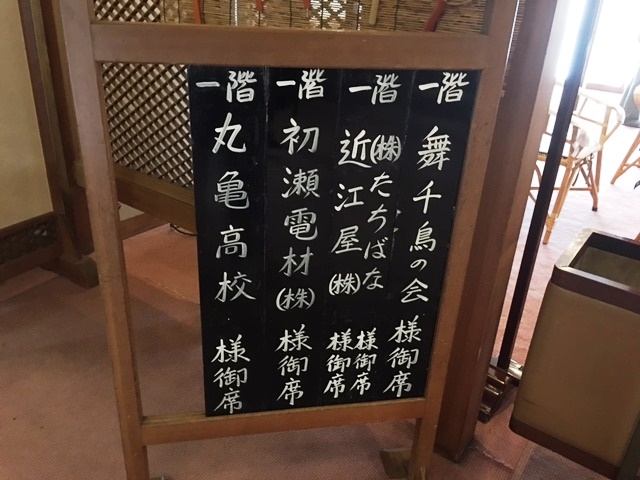 一階 舞千鳥の会 様御席
一階 ㈱たちばな 様御席
近江屋㈱ 様御席
一階 初瀬電材㈱ 様御席
一階 丸亀高校 様御席